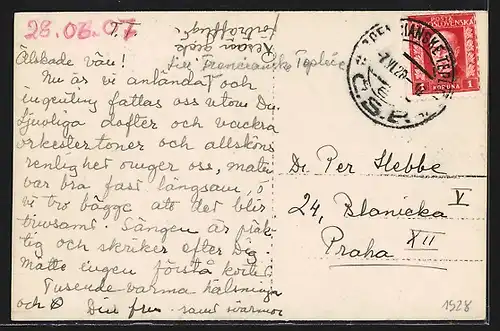 28.06.07
T. T.
Resan gick
förträffligt.
Älskade vän!
till Trencianske Teplice
Nu är vi anländat och
ingenting fattas oss utom Du
Ljuvliga dofter och vackra
orkestertoner och allsköns
renlighet omger oss, maten
var bra fast långsam, o
vi tro bägge att det blir
trivsamt. Sängen är präk-
tig och skriker efter Dig.
Måtte ingen förstå kortet
Tusende varma hälsningar
och
Din fru samt svärmor
TRENČIANSKE TEPLICE
7.VI.28
Č.S.P.
POŠTA
ČESKOSLOVENSKÁ
1 KORUNA 1
Dr. Per Hebbe
24, Blanicka V
Praha XII
1928